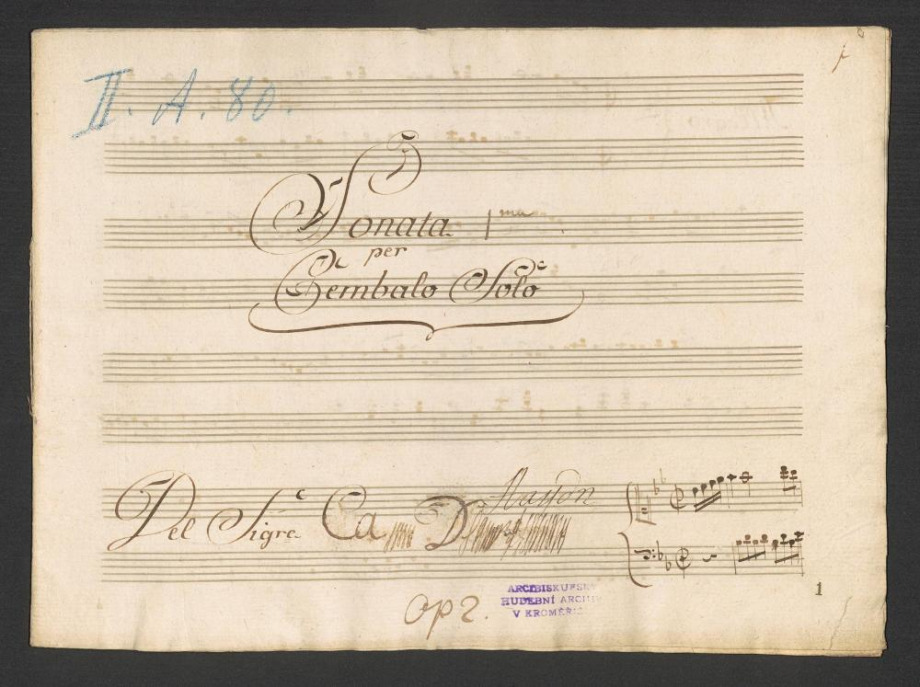 II. A. 80.
Sonata 1ma
per
Cembalo Solo
Del Sigre Ca D
1
op 2.
ARCIBISKUPSK
HUDEBNÍ ARCHIV
V KROMĚŘÍŽ